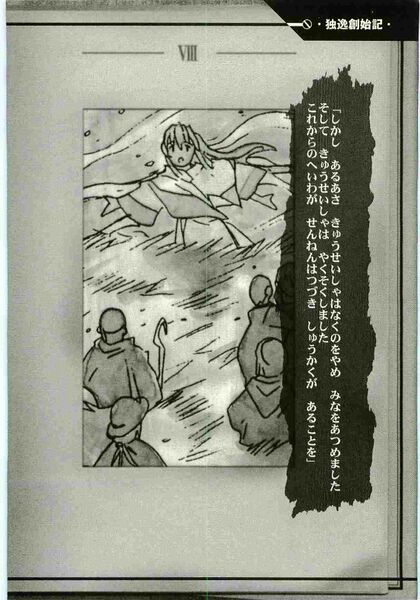 ・独逸創始記・
VIII
「しかし　あるあさ　きゅうせいしゃはなくのをやめ　みなをあつめました
そして　きゅうせいしゃは　やくそくしました
これからのへいわが　せんねんはつづき　しゅうかくが　あることを」